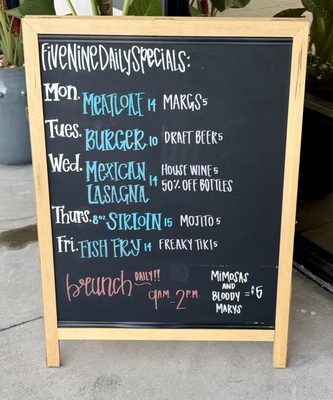 FiveNineDailySpecials:
Mon. Meatloaf 14 Margs 5
Tues. Burger 10 Draft Beer 5
Wed. Mexican Lasagna 14 House Wine 5
50% off Bottles
Thurs. 8oz Sirloin 15 Mojito 5
Fri. Fish Fry 14 Freaky Tiki 5
brunch Daily!!
9am-2pm
Mimosas
and
Bloody = $5
Marys